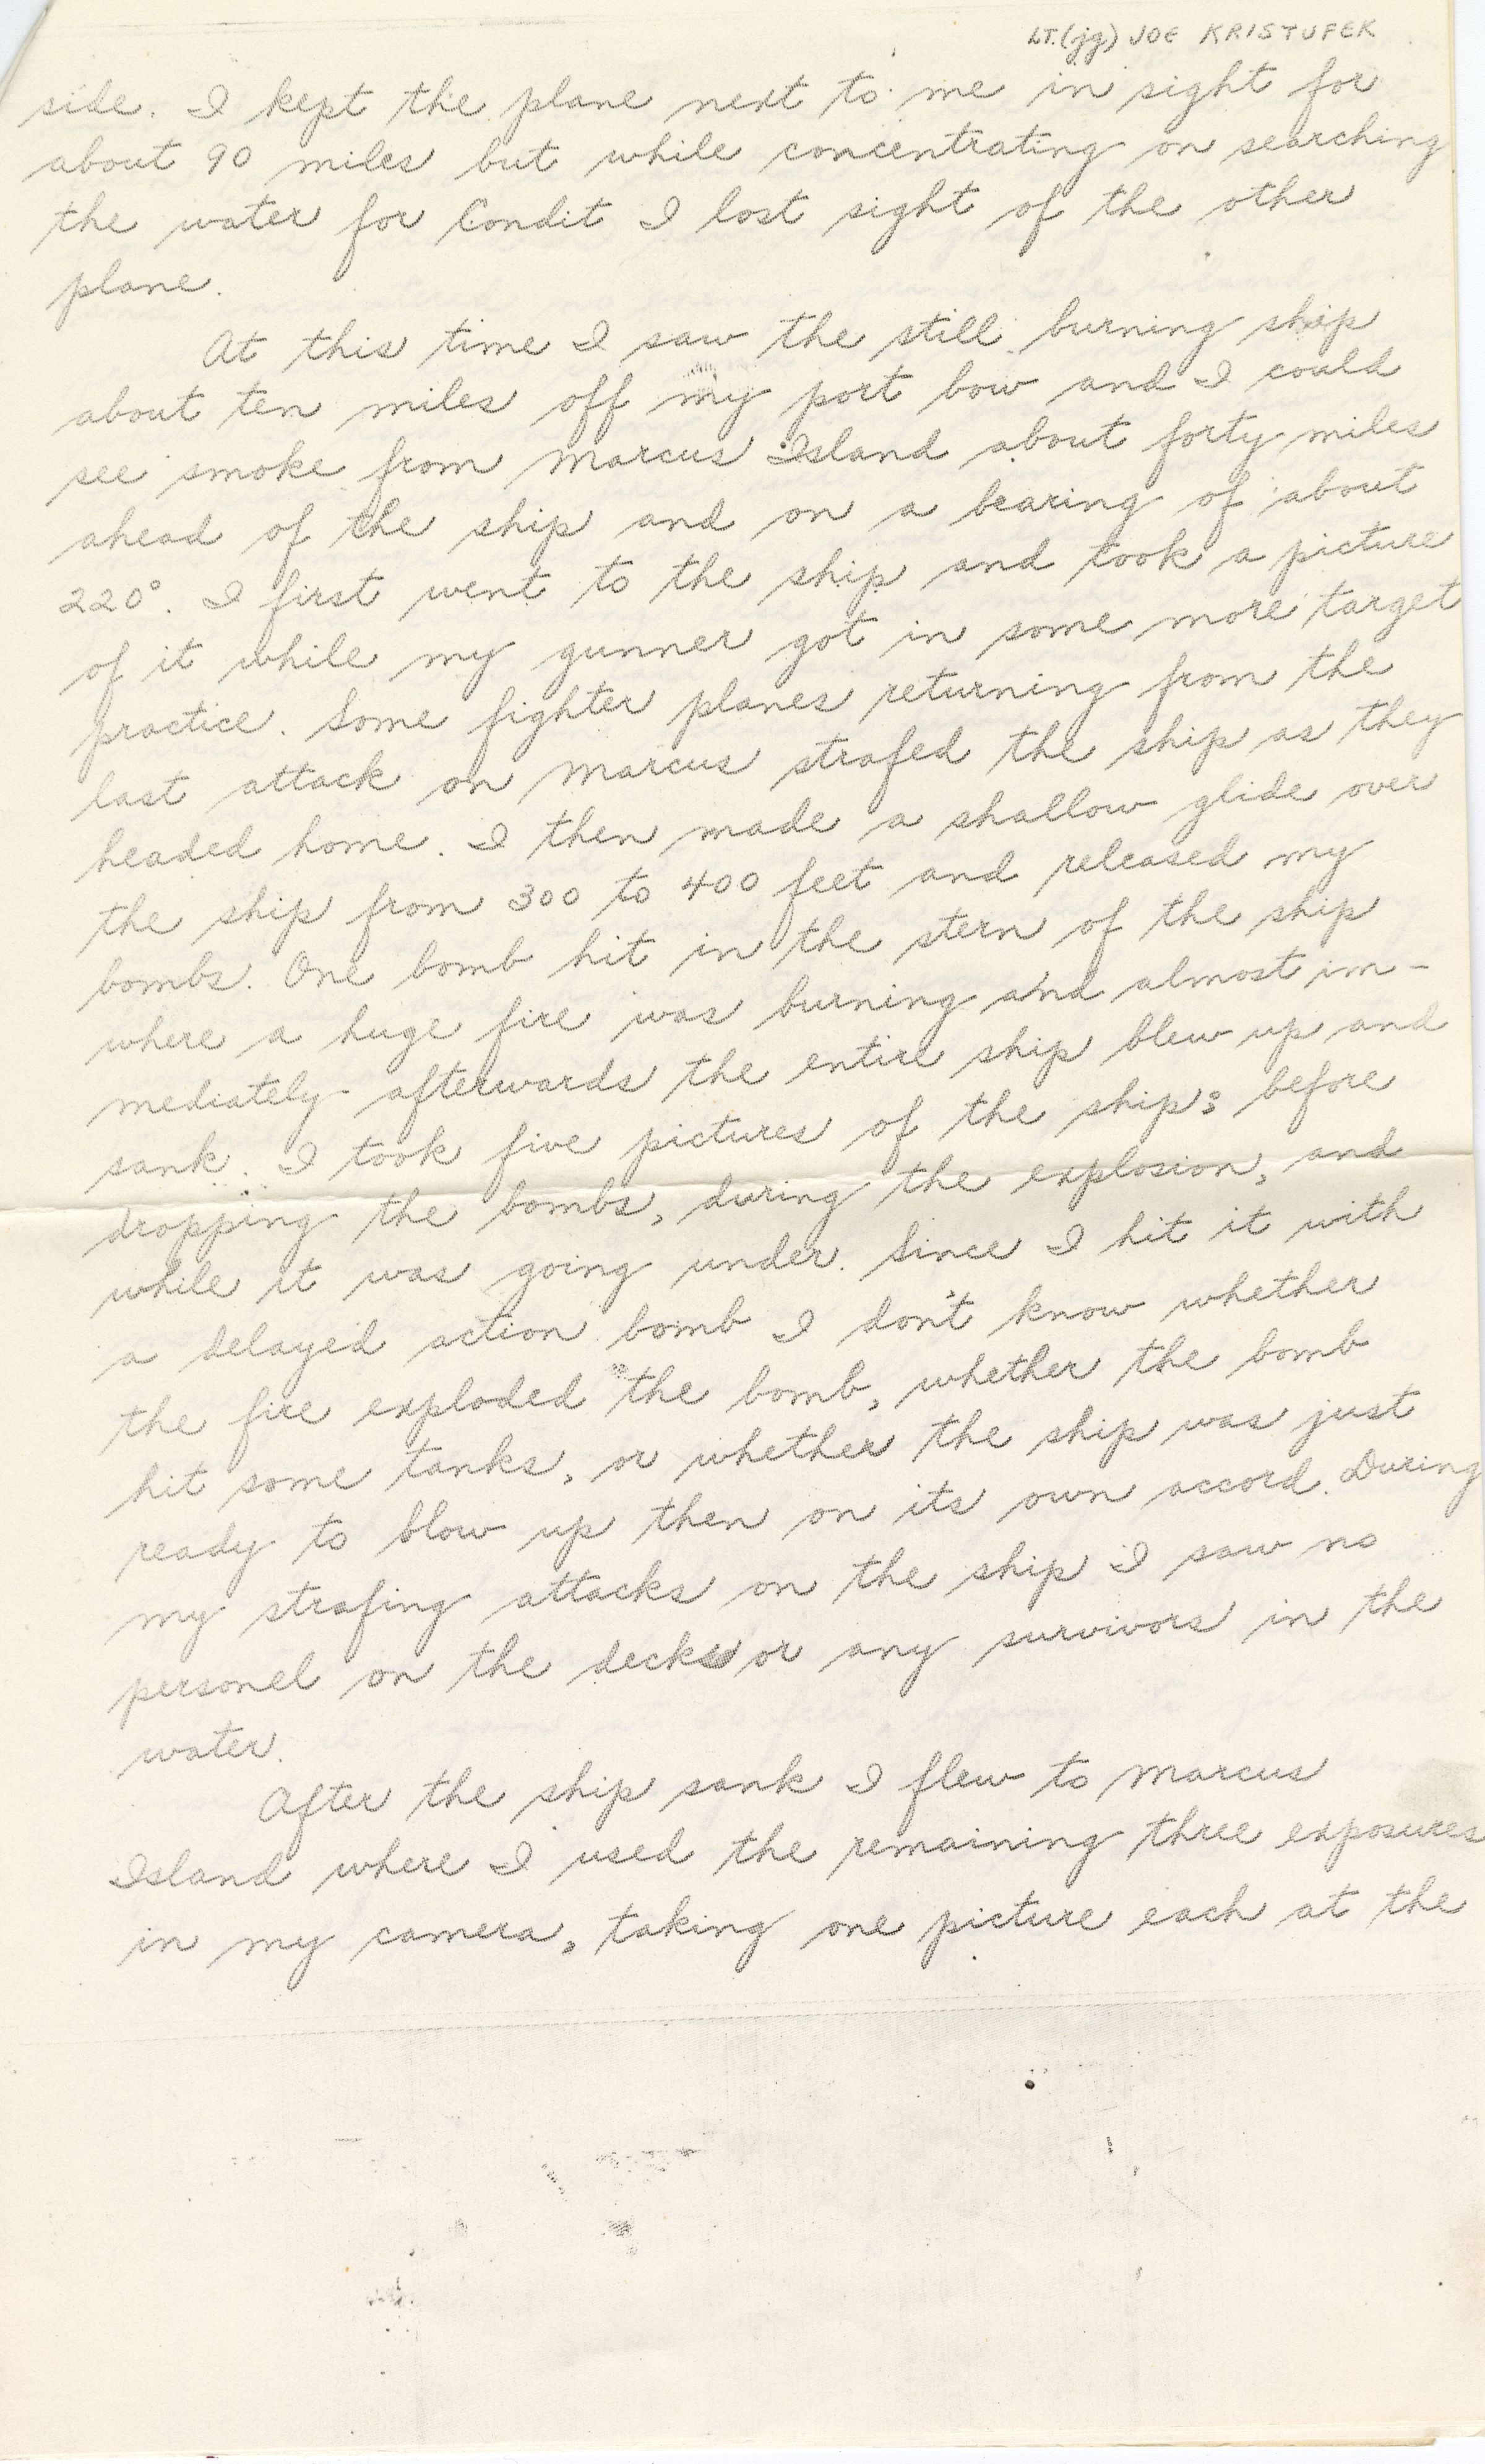 LT.(jg) JOE KRISTUFEK
side. I kept the plane next to me in sight for
about 90 miles but while concentrating on searching
the water for Condit I lost sight of the other
plane.
At this time I saw the still burning ship
about ten miles off my port bow and I could
see smoke from Marcus Island about forty miles
ahead of the ship and on a bearing of about
220°. I first went to the ship and took a picture
of it while my gunner got in some more target
practice. Some fighter planes returning from the
last attack on Marcus strafed the ship as they
headed home. I then made a shallow glide over
the ship from 300 to 400 feet and released my
bombs. One bomb hit in the stern of the ship
where a huge fire was burning and almost im-
mediately afterwards the entire ship blew up and
sank. I took five pictures of the ship; before
dropping the bombs, during the explosion, and
while it was going under. Since I hit it with
a delayed action bomb I don't know whether
the fire exploded the bomb, whether the bomb
hit some tanks, or whether the ship was just
ready to blow up then on its own accord. During
my strafing attacks on the ship I saw no
personel on the decks or any survivors in the
water.
After the ship sank I flew to Marcus
Island where I used the remaining three exposures
in my camera, taking one picture each at the